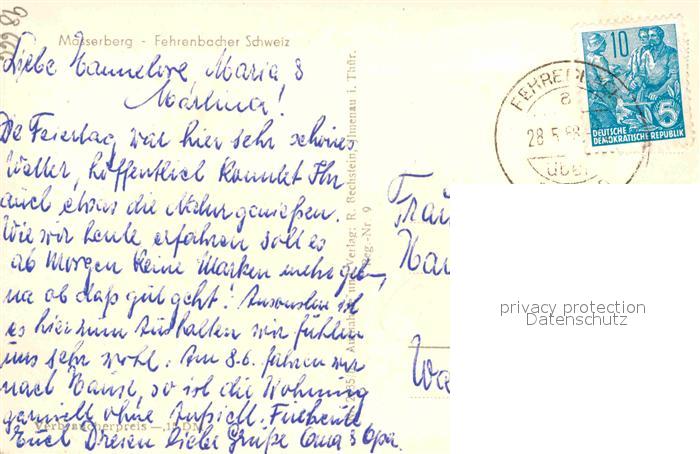 98666
Masserberg - Fehrenbacher Schweiz
Liebe Hannelore, Maria &
Martina!
Die Feiertag war hier sehr schönes
Wetter, hoffentlich konntet Ihr
auch etwas die Natur genießen.
Wie wir heute erfahren soll es
ab Morgen keine Marken mehr geben,
na ob daß gut geht! Ansonsten ist
es hier zum Aushalten wir fühlen
uns sehr wohl. Am 8.6. fahren wir
nach Hause, so ist die Wohnung
generell ohne Aufsicht. Für heute
Euch Dreien liebe Grüße Oma & Opa.
Verbraucherpreis —,15 DM
Verlag: R. Bechstein, Ilmenau i. Thür.
Reg.-Nr 9
FEHRENBACH
a
28.5.58
über
10
5
DEUTSCHE
DEMOKRATISCHE REPUBLIK
privacy protection
Datenschutz